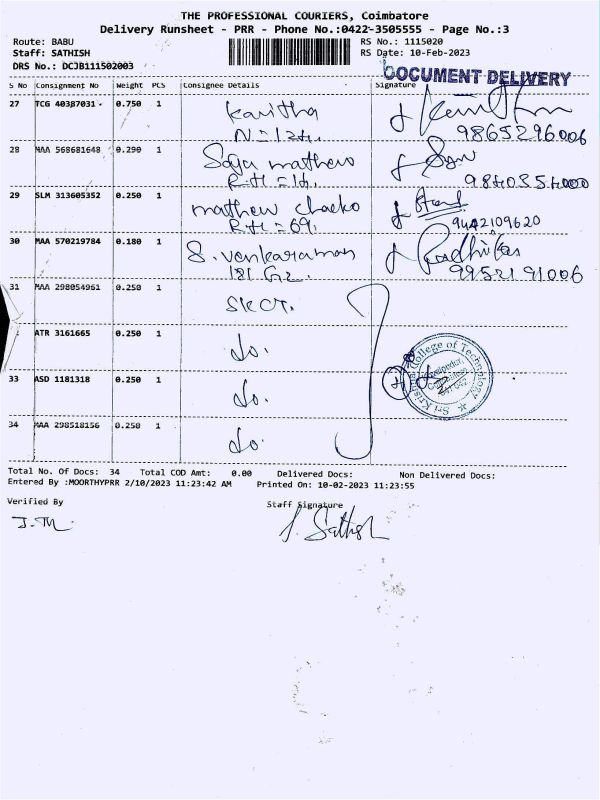 THE PROFESSIONAL COURIERS, Coimbatore
Delivery Runsheet - PRR - Phone No.:0422-3505555 - Page No.:3
Route: BABU
RS No.: 1115020
Staff: SATHISH
RS Date: 10-Feb-2023
DRS No.: DCJB111502003
DOCUMENT DELIVERY
S No Consignment No Weight PCS Consignee Details Signature
27 TCG 40387031 0.750 1 Kavitha
N=124.
9865296006
28 MAA 568681648 0.290 1 Saga mathew
R.H=14.
9840354000
29 SLM 313605352 0.250 1 mathew chacko
R.H=69.
9442109620
30 MAA 570219784 0.180 1 S. Venkaraman Radhika
181 G2. 9952191006
31 MAA 298054961 0.250 1 SKCT.
ATR 3161665 0.250 1 do.
33 ASD 1181318 0.250 1 do.
34 MAA 298518156 0.250 1 do.
Sri Krishna College of Technology
Total No. Of Docs: 34 Total COD Amt: 0.00 Delivered Docs: Non Delivered Docs:
Entered By :MOORTHYPRR 2/10/2023 11:23:42 AM Printed On: 10-02-2023 11:23:55
Verified By
Staff Signature
J. Sathish